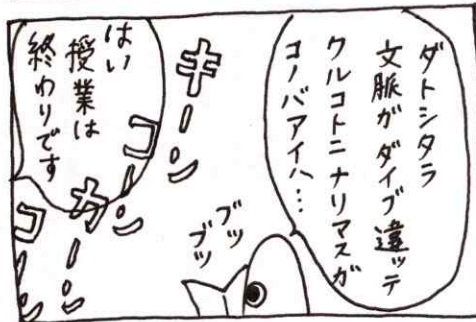 ダトシタラ
文脈ガダイブ違ッテ
クルコトニナリマスガ
コノバアイハ…
ブツ
ブツ
キーン
コーン
カーン
コーン
はい
授業は
終わりです